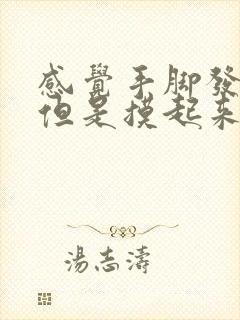 感覺手腳發
但是摸起來
湯志濤